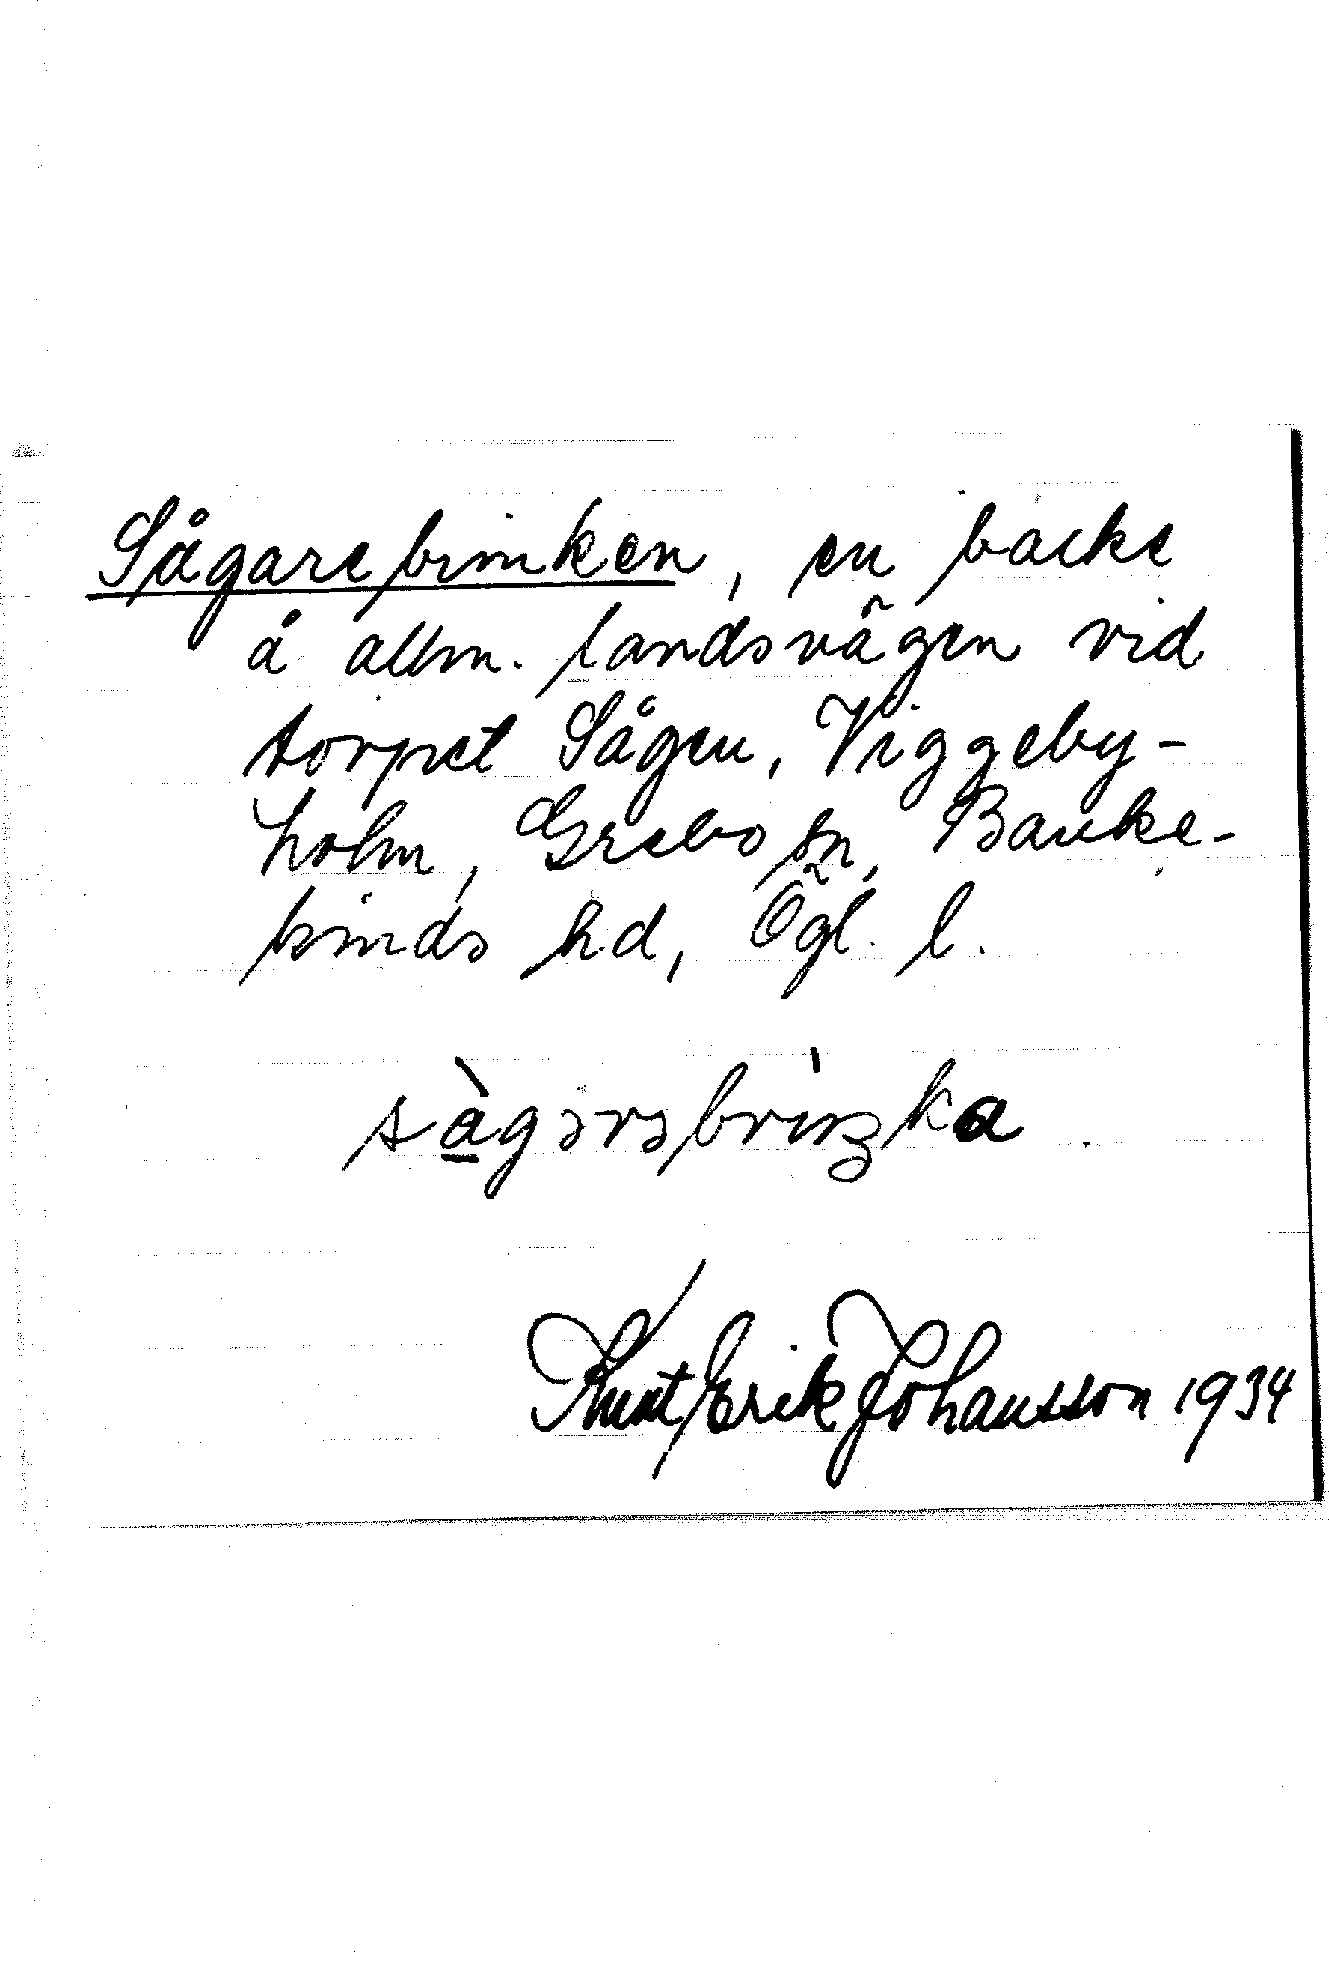 Sågarebrinken, en backe
å allm. landsvägen vid
torpet Sågen, Viggeby-
holm, Grebo sn, Banke-
kinds hd, Ögl. l.
sàgərəbrıŋka
Knut Erik Johansson 1934